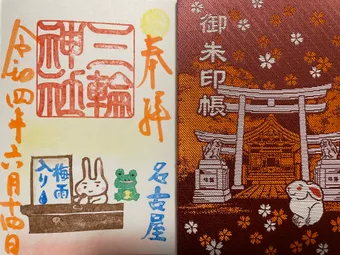 奉拝
三輪
神社
名古屋
令和四年六月十四日
梅雨
入り
御朱印帳